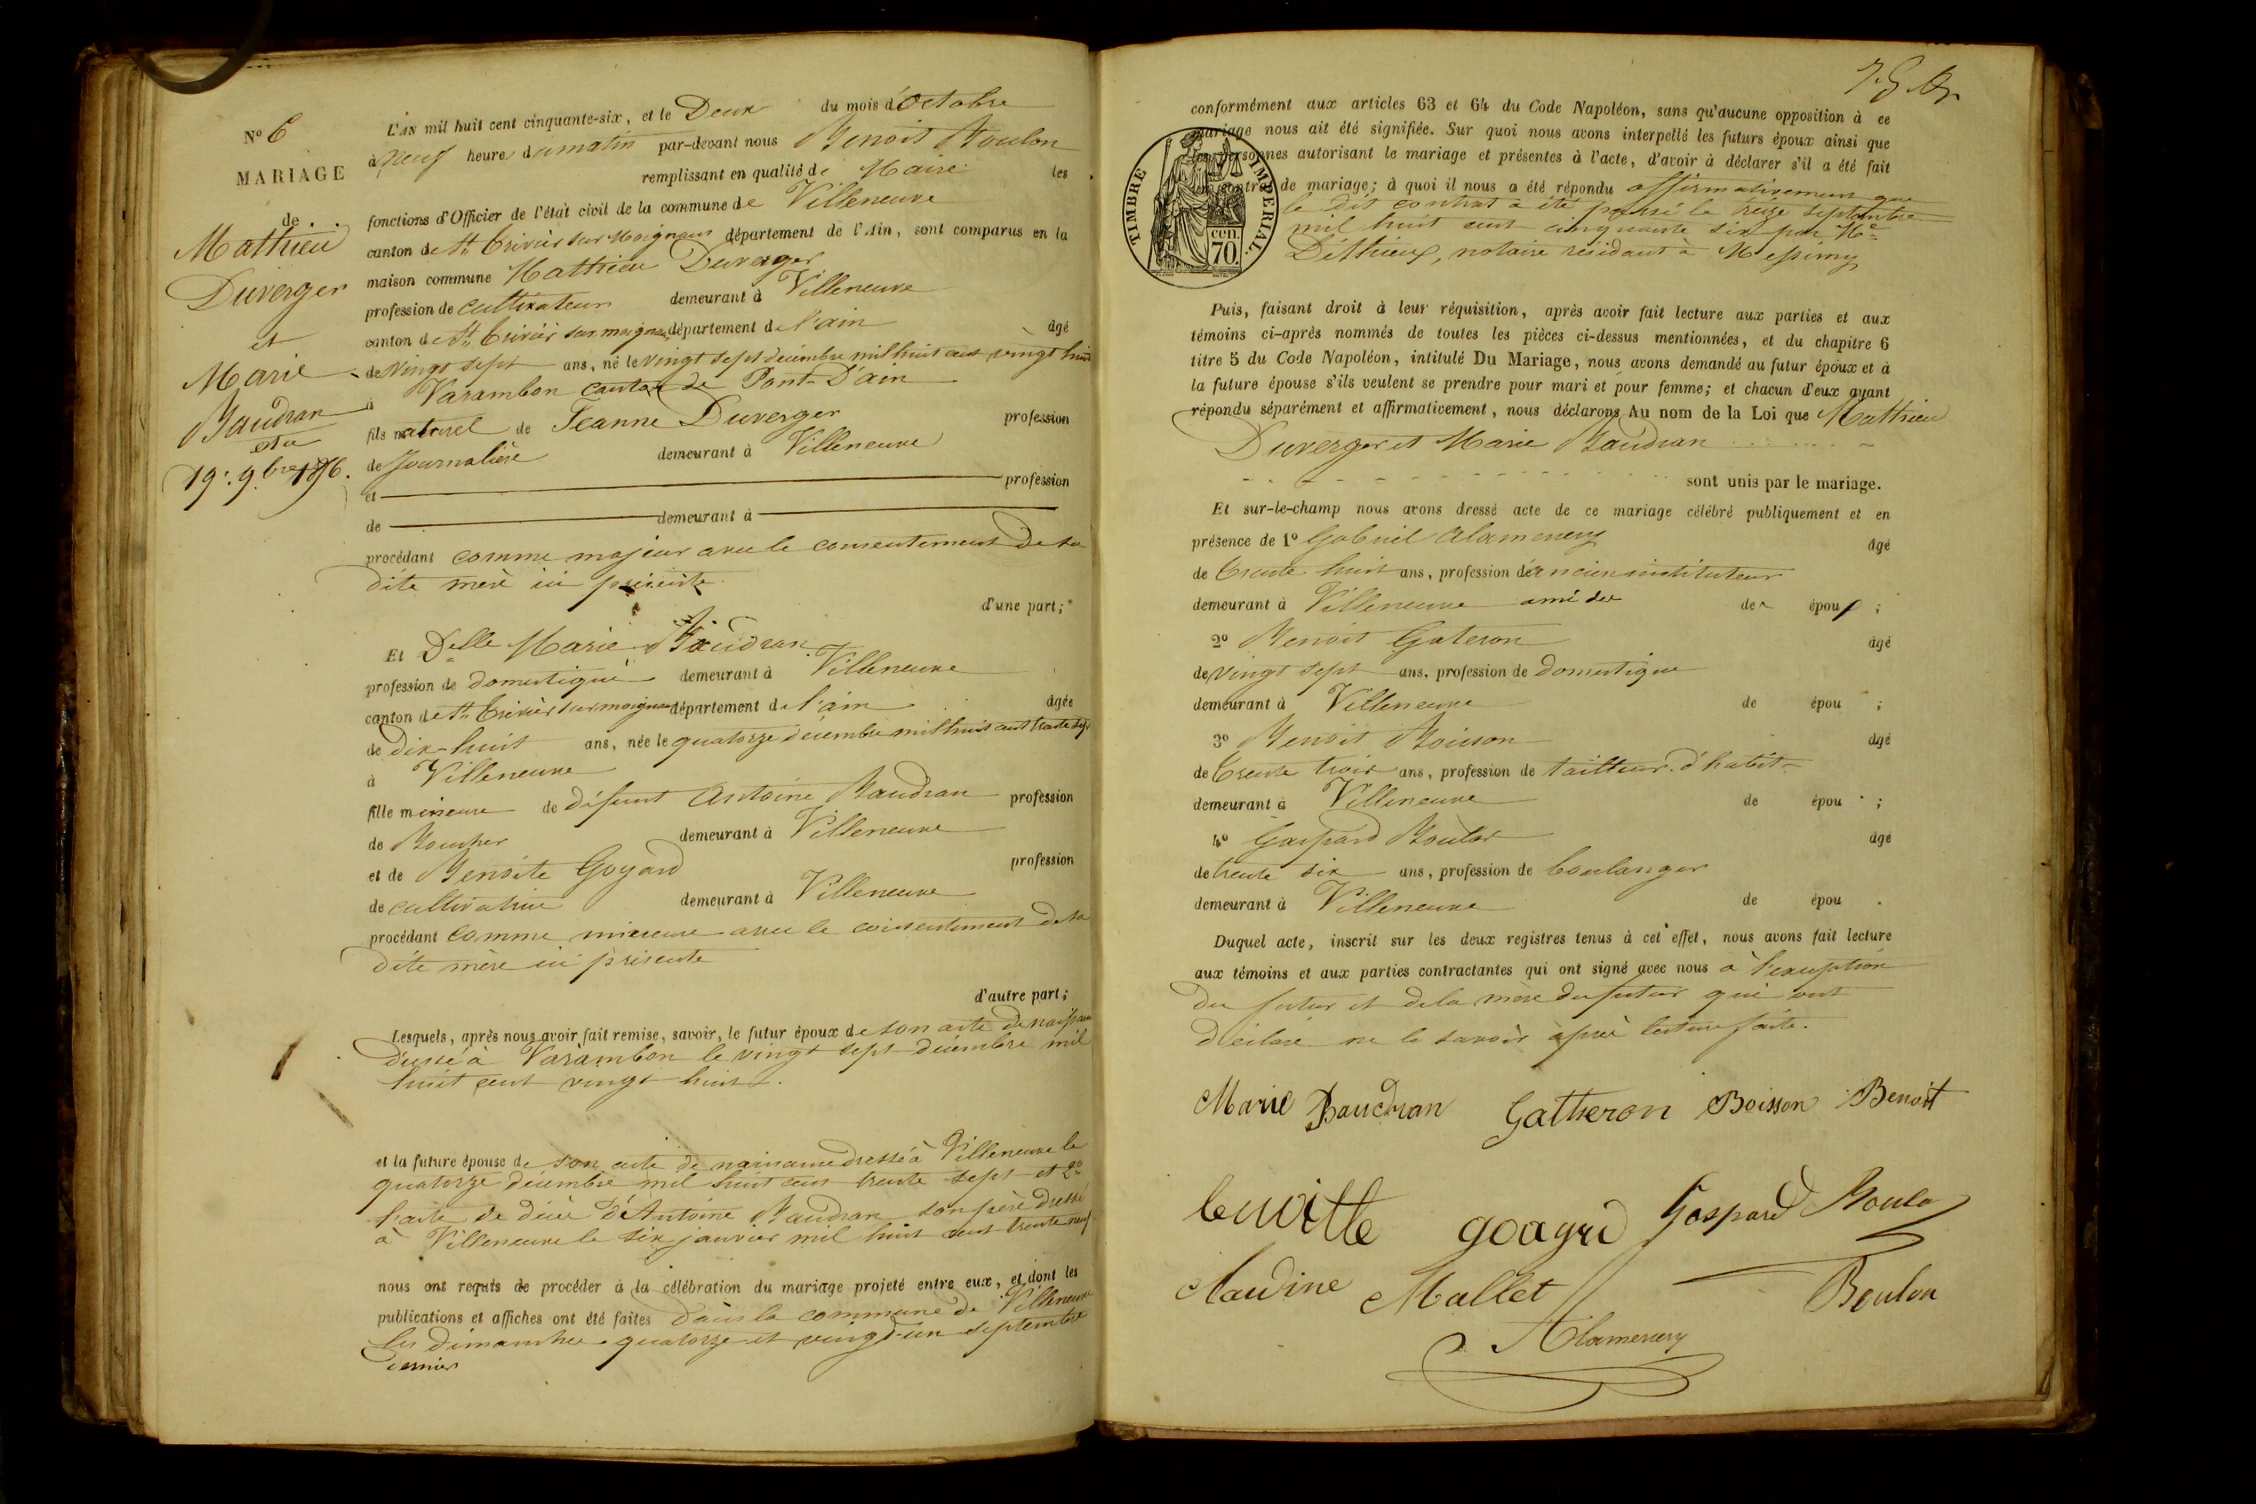 N° 6
MARIAGE
de
Mathieu
Duverger
et
Marie
Baudran
19. 9bre
L'AN mil huit cent cinquante-six, et le Deux du mois d'Octobre
à neuf heures du matin par-devant nous Benoit Boulon
remplissant en qualité de Maire les
fonctions d'Officier de l'état civil de la commune de Villeneuve
canton de St Trivier sur Moignans département de l'Ain, sont comparus en la
maison commune Mathieu Duverger
profession de cultivateur demeurant à Villeneuve
canton de St Trivier sur moignans département de l'ain âgé
de vingt sept ans, né le vingt sept décembre mil huit cent vingt huit
à Varambon canton de Pont-D'ain
fils naturel de Jeanne Duverger profession
de Journalière demeurant à Villeneuve
et profession
de demeurant à
procédant comme majeur avec le consentement de sa
dite mère ici présente
d'une part;
Et Delle Marie Baudran
profession de domestique demeurant à Villeneuve
canton de St Trivier sur moignans département de l'ain âgée
de dix-huit ans, née le quatorze décembre mil huit cent trente sept
à Villeneuve
fille mineure de défunt Antoine Baudran profession
de demeurant à Villeneuve
et de Benoite Goyard profession
de cultivatrice demeurant à Villeneuve
procédant comme mineure avec le consentement de sa
dite mère ici présente
d'autre part;
Lesquels, après nous avoir fait remise, savoir, le futur époux de son acte de naissance
dressé à Varambon le vingt sept décembre mil
huit cent vingt huit.
et la future épouse de son acte de naissance dressé à Villeneuve le
quatorze décembre mil huit cent trente sept et 2°
l'acte de décès d'Antoine Baudran son père dressé
à Villeneuve le six janvier mil huit cent trente neuf
nous ont requis de procéder à la célébration du mariage projeté entre eux, et dont les
publications et affiches ont été faites dans la commune de Villeneuve
les dimanches quatorze et vingt un septembre
dernier
conformément aux articles 63 et 64 du Code Napoléon, sans qu'aucune opposition à ce
mariage nous ait été signifiée. Sur quoi nous avons interpellé les futurs époux ainsi que
les personnes autorisant le mariage et présentes à l'acte, d'avoir à déclarer s'il a été fait
contrat de mariage; à quoi il nous a été répondu affirmativement que
le dit contrat a été passé le treize septembre
mil huit cent cinquante six par Me
Déthieux, notaire résidant à Messimy
TIMBRE IMPERIAL.
70. cen.
Puis, faisant droit à leur réquisition, après avoir fait lecture aux parties et aux
témoins ci-après nommés de toutes les pièces ci-dessus mentionnées, et du chapitre 6
titre 5 du Code Napoléon, intitulé Du Mariage, nous avons demandé au futur époux et à
la future épouse s'ils veulent se prendre pour mari et pour femme; et chacun d'eux ayant
répondu séparément et affirmativement, nous déclarons Au nom de la Loi que Mathieu
Duverger et Marie Baudran
sont unis par le mariage.
Et sur-le-champ nous avons dressé acte de ce mariage célébré publiquement et en
présence de 1° Gabriel Alamercery âgé
de trente huit ans, profession d'ancien instituteur
demeurant à Villeneuve ami des de épou ;
2° Benoit Gateron âgé
de vingt sept ans, profession de domestique
demeurant à Villeneuve de épou ;
3° Benoit Boisson âgé
de trente trois ans, profession de tailleur d'habit
demeurant à Villeneuve de épou ;
4° Gaspard Boulot âgé
de trente six ans, profession de boulanger
demeurant à Villeneuve de épou .
Duquel acte, inscrit sur les deux registres tenus à cet effet, nous avons fait lecture
aux témoins et aux parties contractantes qui ont signé avec nous à l'exception
du futur et de la mère du futur qui ont
déclaré ne le savoir après lecture faite.
Marie Baudran Gatheron Boisson Benoit
goagrd Gaspard Boulo
Claudine Mallet Boulon
Alamercery